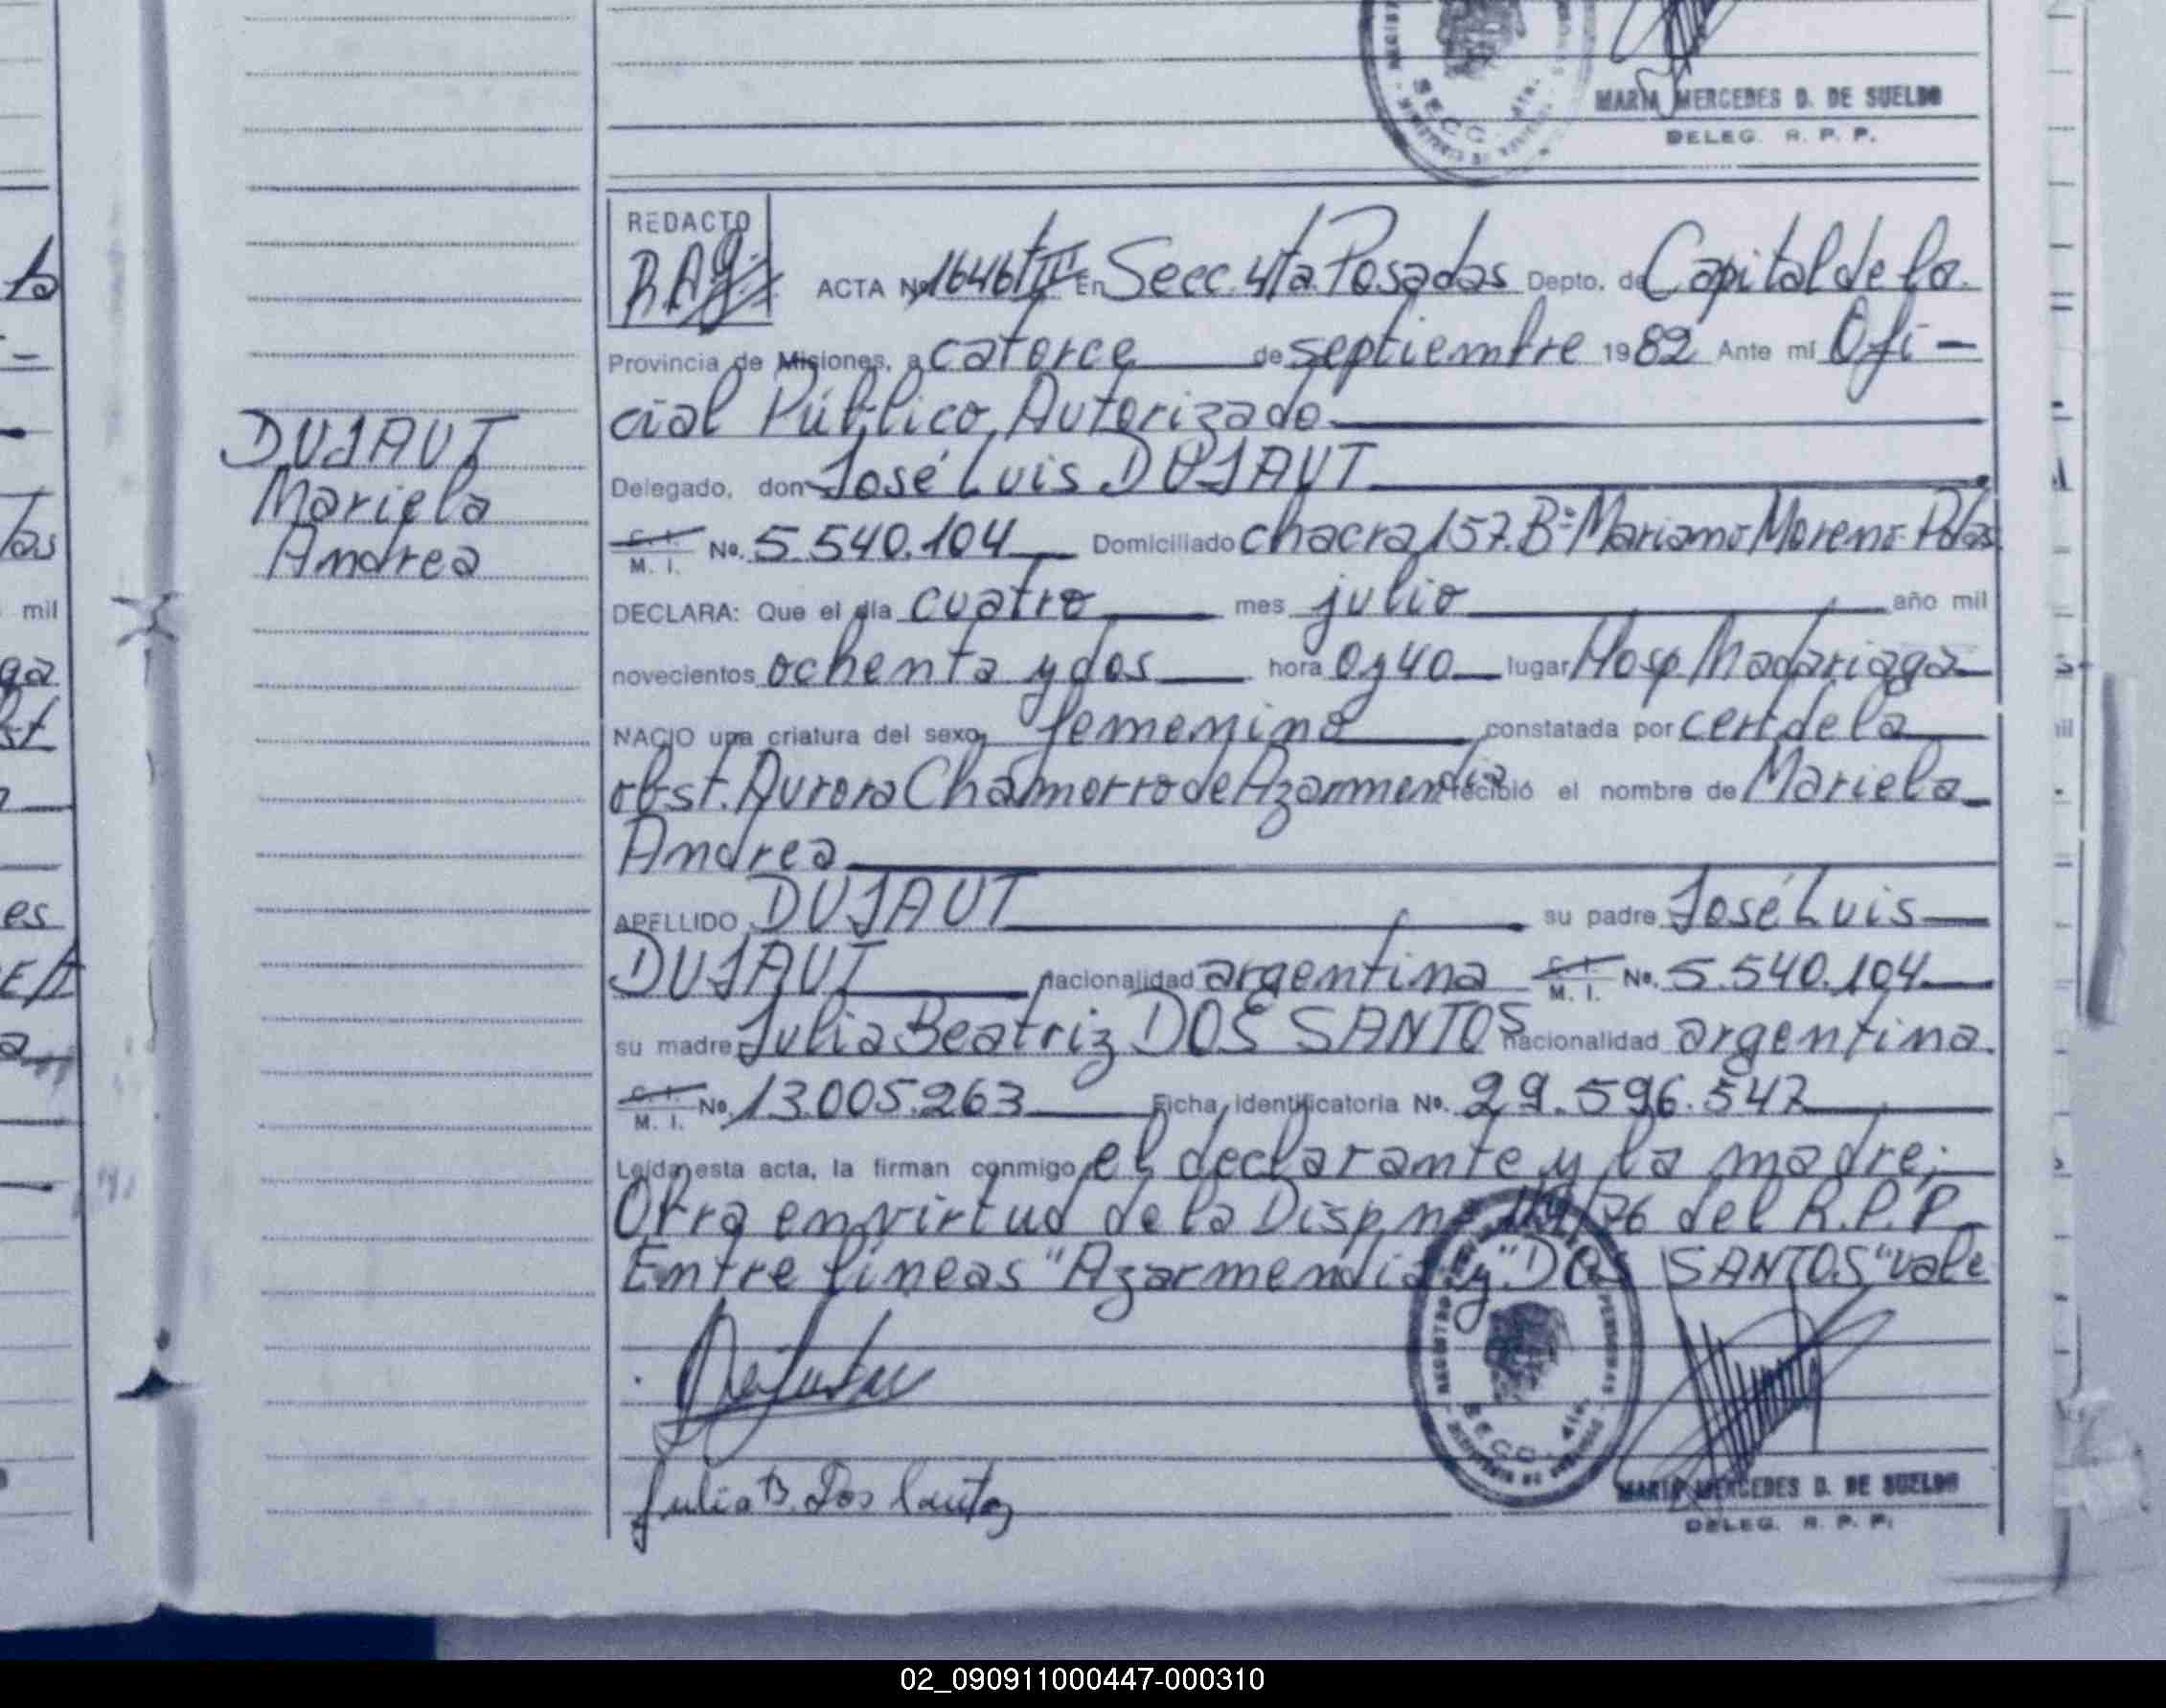 MARIA MERCEDES D. DE SUELDO
DELEG. R. P. P.
REDACTO
ACTA No 1646 T III En Secc. 4ta. Posadas Depto. de Capital de la
Provincia de Misiones, a catorce de septiembre 1982 Ante mi Ofi-
cial Público Autorizado
Delegado, don José Luis DUJAUT
DUJAUT
Mariela
Andrea
C. I. M. I. No. 5.540.104 Domiciliado chacra 157. Bº Mariano Moreno- Pdas
DECLARA: Que el día cuatro mes julio año mil
novecientos ochenta y dos hora 0y40 lugar Hosp Madariaga
NACIO una criatura del sexo femenino constatada por cert de la
obst. Aurora Chamorro de Azarmendia recibió el nombre de Mariela
Andrea
APELLIDO DUJAUT su padre José Luis
DUJAUT nacionalidad argentina C. I. M. I. No. 5.540.104
su madre Julia Beatriz DOS SANTOS nacionalidad argentina.
C. I. M. I. No. 13.005.263 Ficha identificatoria No. 29.596.547
Leída esta acta, la firman conmigo el declarante y la madre;
Obra en virtud de la Disp. nº 119/76 del R.P.P.
Entre líneas "Azarmendia y "DOS SANTOS" vale
Julia B. Dos Santos
SECC. 4ta.
MARIA MERCEDES D. DE SUELDO
DELEG. R. P. P.
02_090911000447-000310